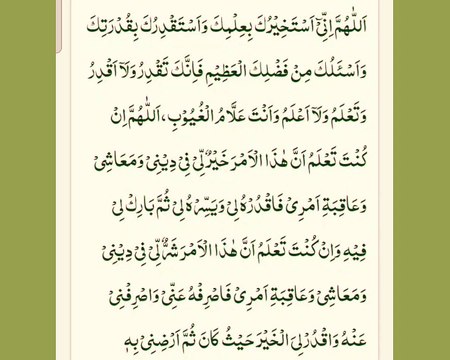 اَللّٰهُمَّ اِنِّیْٓ اَسْتَخِیْرُكَ بِعِلْمِكَ وَاَسْتَقْدِرُكَ بِقُدْرَتِكَ
وَاَسْئَلُكَ مِنْ فَضْلِكَ الْعَظِیْمِ فَاِنَّكَ تَقْدِرُ وَلَآ اَقْدِرُ
وَتَعْلَمُ وَلَآ اَعْلَمُ وَاَنْتَ عَلَّامُ الْغُیُوْبِ، اَللّٰهُمَّ اِنْ
كُنْتَ تَعْلَمُ اَنَّ هٰذَا الْاَمْرَ خَیْرٌ لِّیْ فِیْ دِیْنِیْ وَمَعَاشِیْ
وَعَاقِبَةِ اَمْرِیْ فَاقْدُرْهُ لِیْ وَیَسِّرْهُ لِیْ ثُمَّ بَارِكْ لِیْ
فِیْهِ وَاِنْ كُنْتَ تَعْلَمُ اَنَّ هٰذَا الْاَمْرَ شَرٌّ لِّیْ فِیْ دِیْنِیْ
وَمَعَاشِیْ وَعَاقِبَةِ اَمْرِیْ فَاصْرِفْهُ عَنِّیْ وَاصْرِفْنِیْ
عَنْهُ وَاقْدُرْ لِیَ الْخَیْرَ حَیْثُ كَانَ ثُمَّ اَرْضِنِیْ بِهٖ